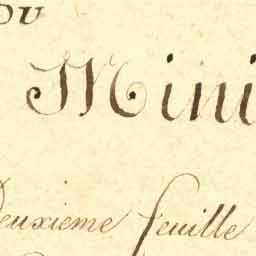 DU
Mini
Deuxieme feuille